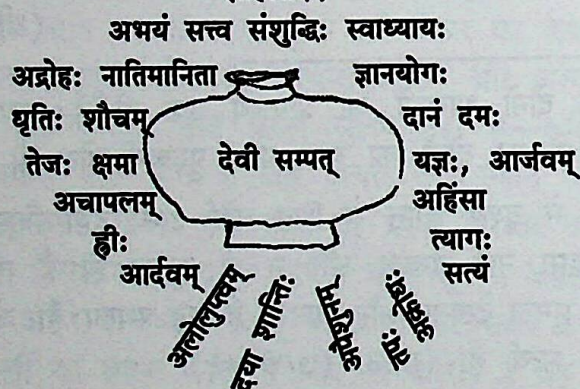 अभयं सत्त्व संशुद्धिः स्वाध्यायः
अद्रोहः नातिमानिता
ज्ञानयोगः
धृतिः शौचम्
दानं दमः
तेजः क्षमा
देवी सम्पत्
यज्ञः, आर्जवम्
अचापलम्
अहिंसा
ह्रीः
त्यागः
आर्दवम्
सत्यं
अलोलुप्त्वम्
दया शान्तिः
अपैशुनम्
तपः